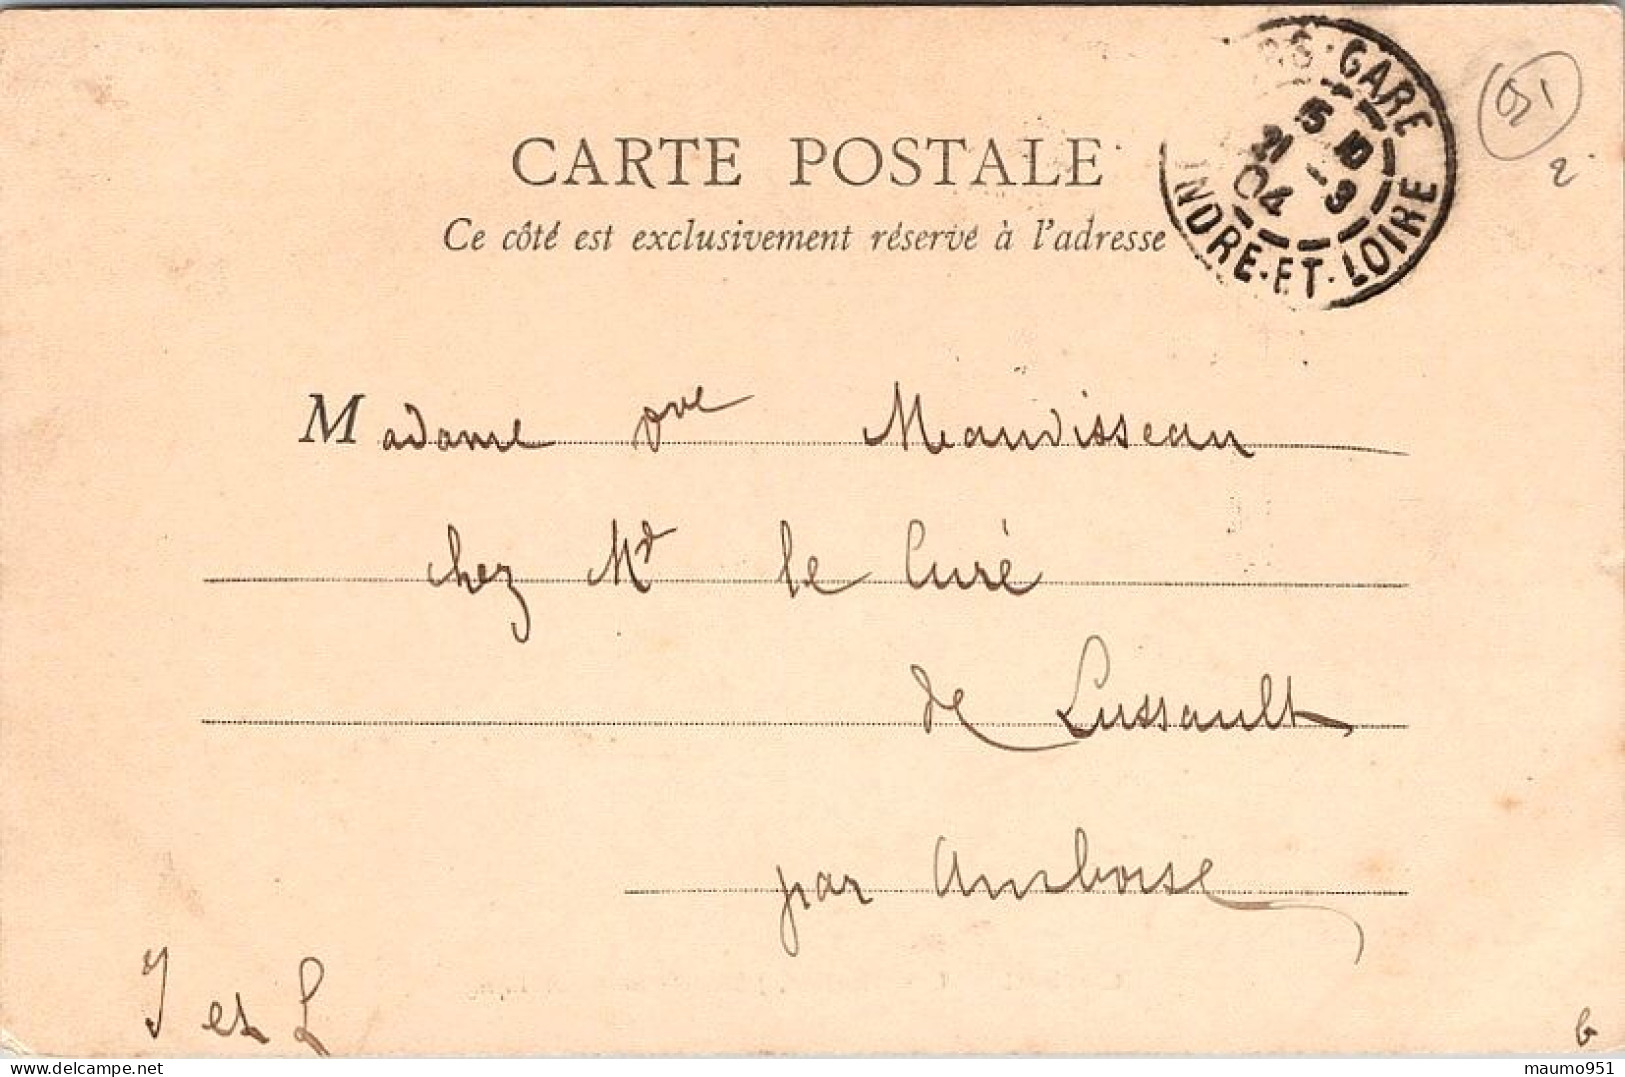 CARTE POSTALE
Ce côté est exclusivement réservé à l'adresse
RS·GARE
15 10
21 -3
04
INDRE-ET-LOIRE
051
2
Madame Vve Meauvisseau
chez Mr le Curé
de Lussault
par Amboise
J et L
6
www.delcampe.net
maumo951